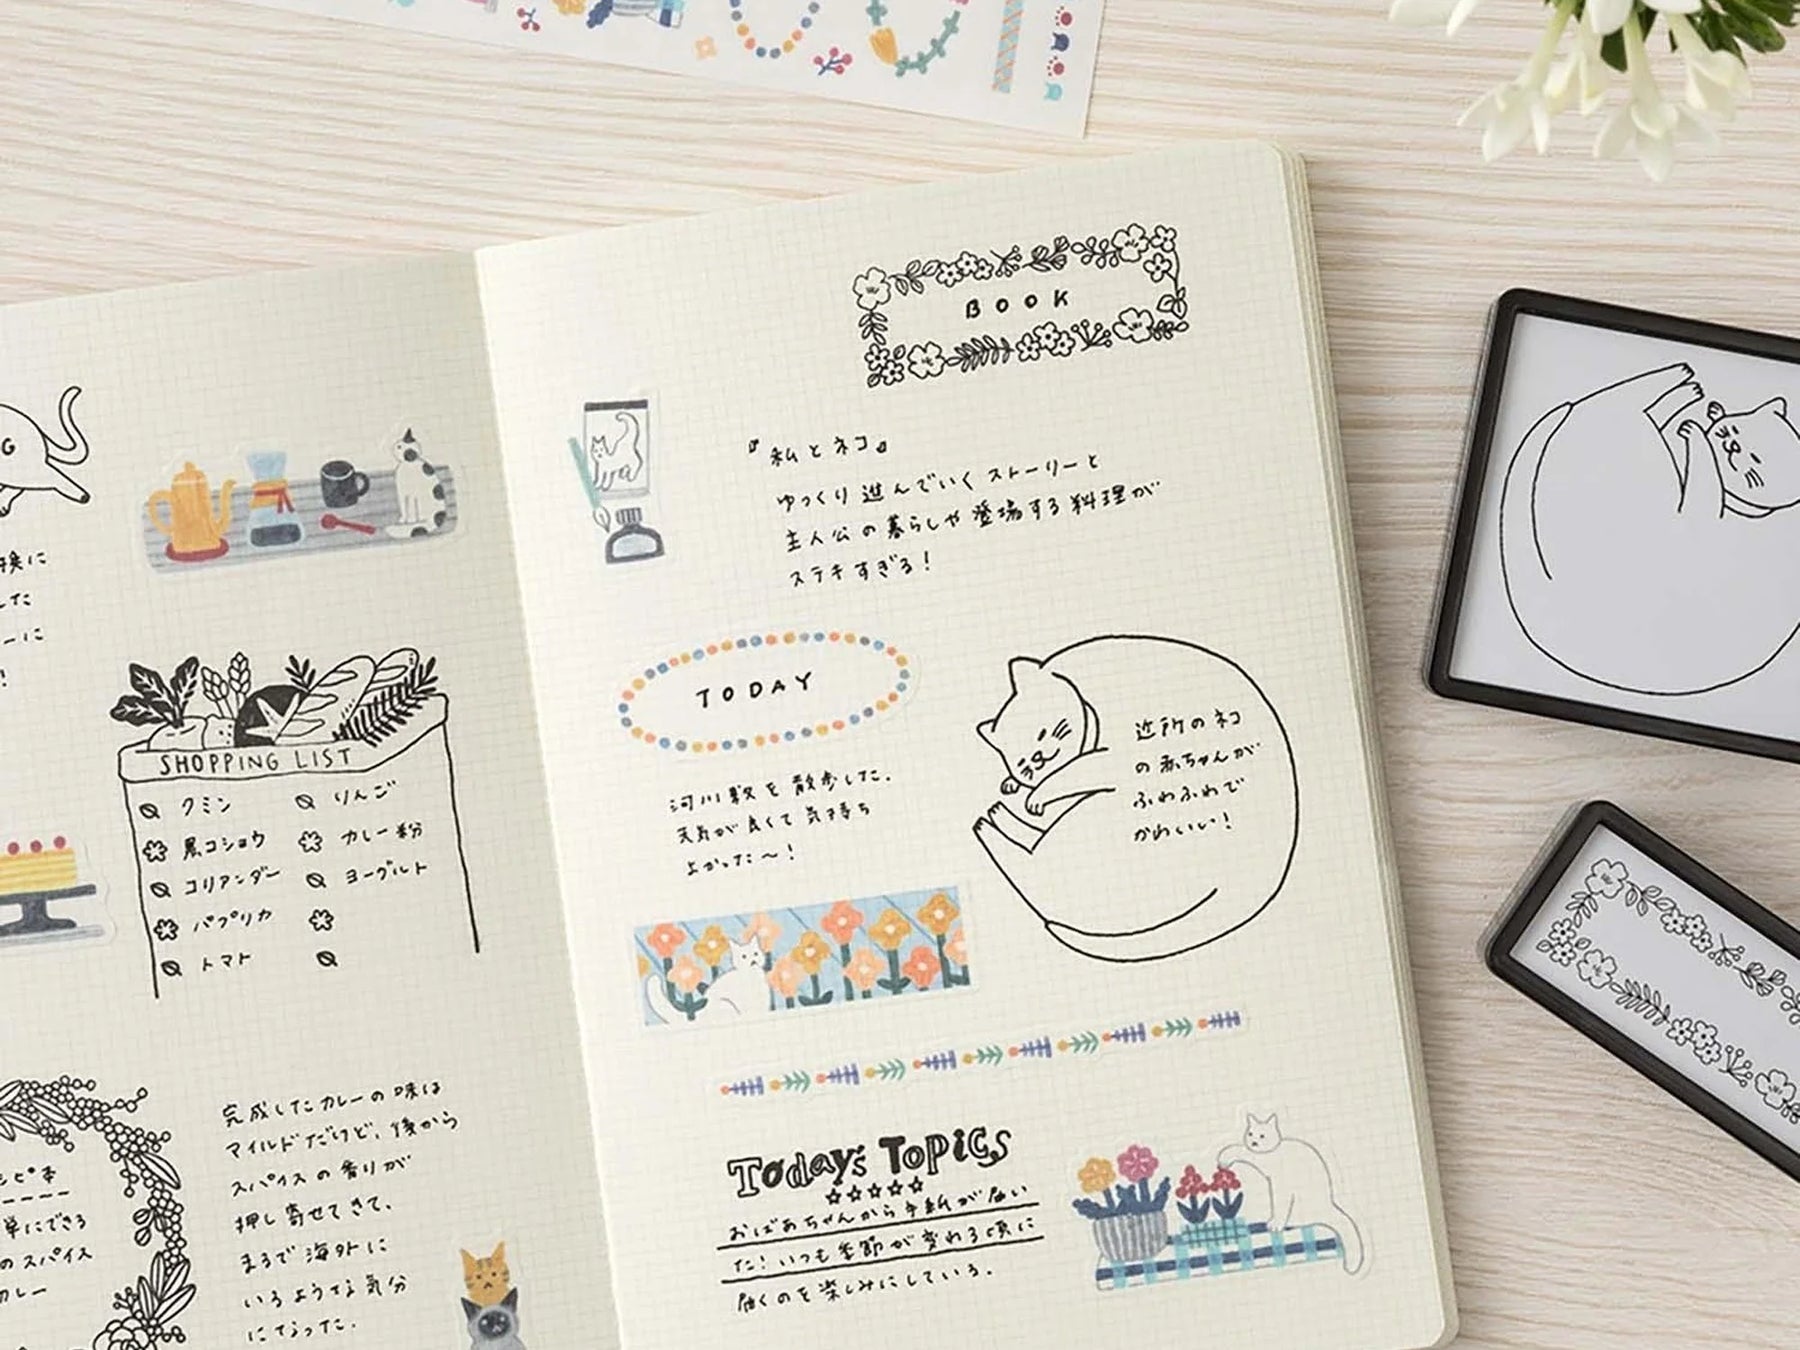 G
換に
した
ーに
！
SHOPPING LIST
クミン
りんご
黒コショウ
カレー粉
コリアンダー
ヨーグルト
パプリカ
トマト
シピ本
単にできる
のスパイス
カレー
完成したカレーの味は
マイルドだけど、後から
スパイスの香りが
押し寄せてきて、
まるで海外に
いるような気分
になった.
BOOK
『私とネコ』
ゆっくり進んでいくストーリーと
主人公の暮らしや登場する料理が
ステキすぎる！
TODAY
河川敷を散歩した.
天気が良くて気持ち
よかった〜！
近所のネコ
の赤ちゃんが
ふわふわで
かわいい！
Today's Topics
おばあちゃんから手紙が届い
た！いつも季節が変わる頃に
届くのを楽しみにしている.